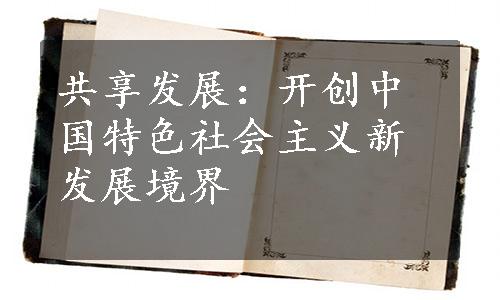 共享发展：开创中
国特色社会主义新
发展境界